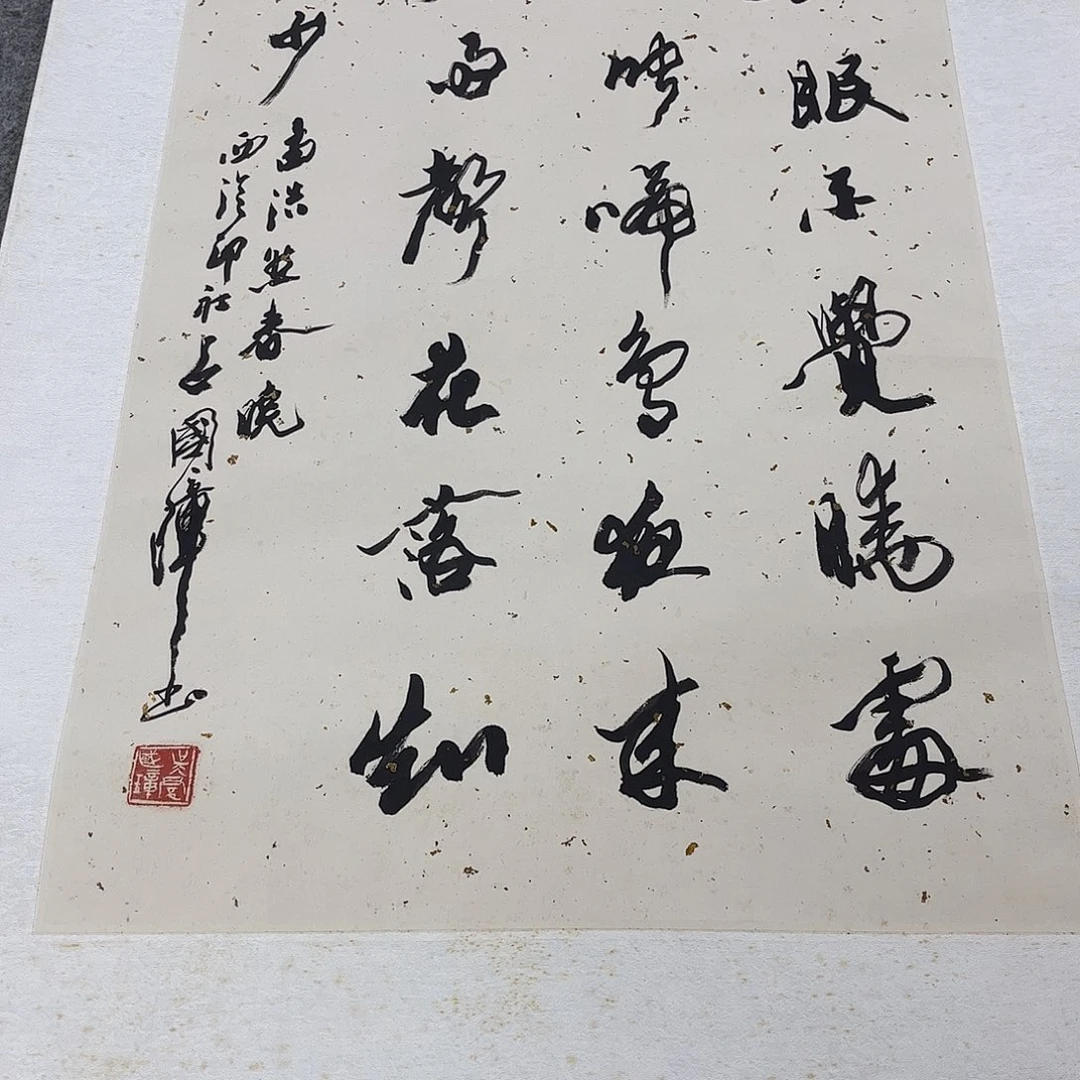 眠不覺曉處
聞啼鳥夜来
雨聲花落知
少
孟浩然春曉
西泠印社吴國璋书
吳印國璋